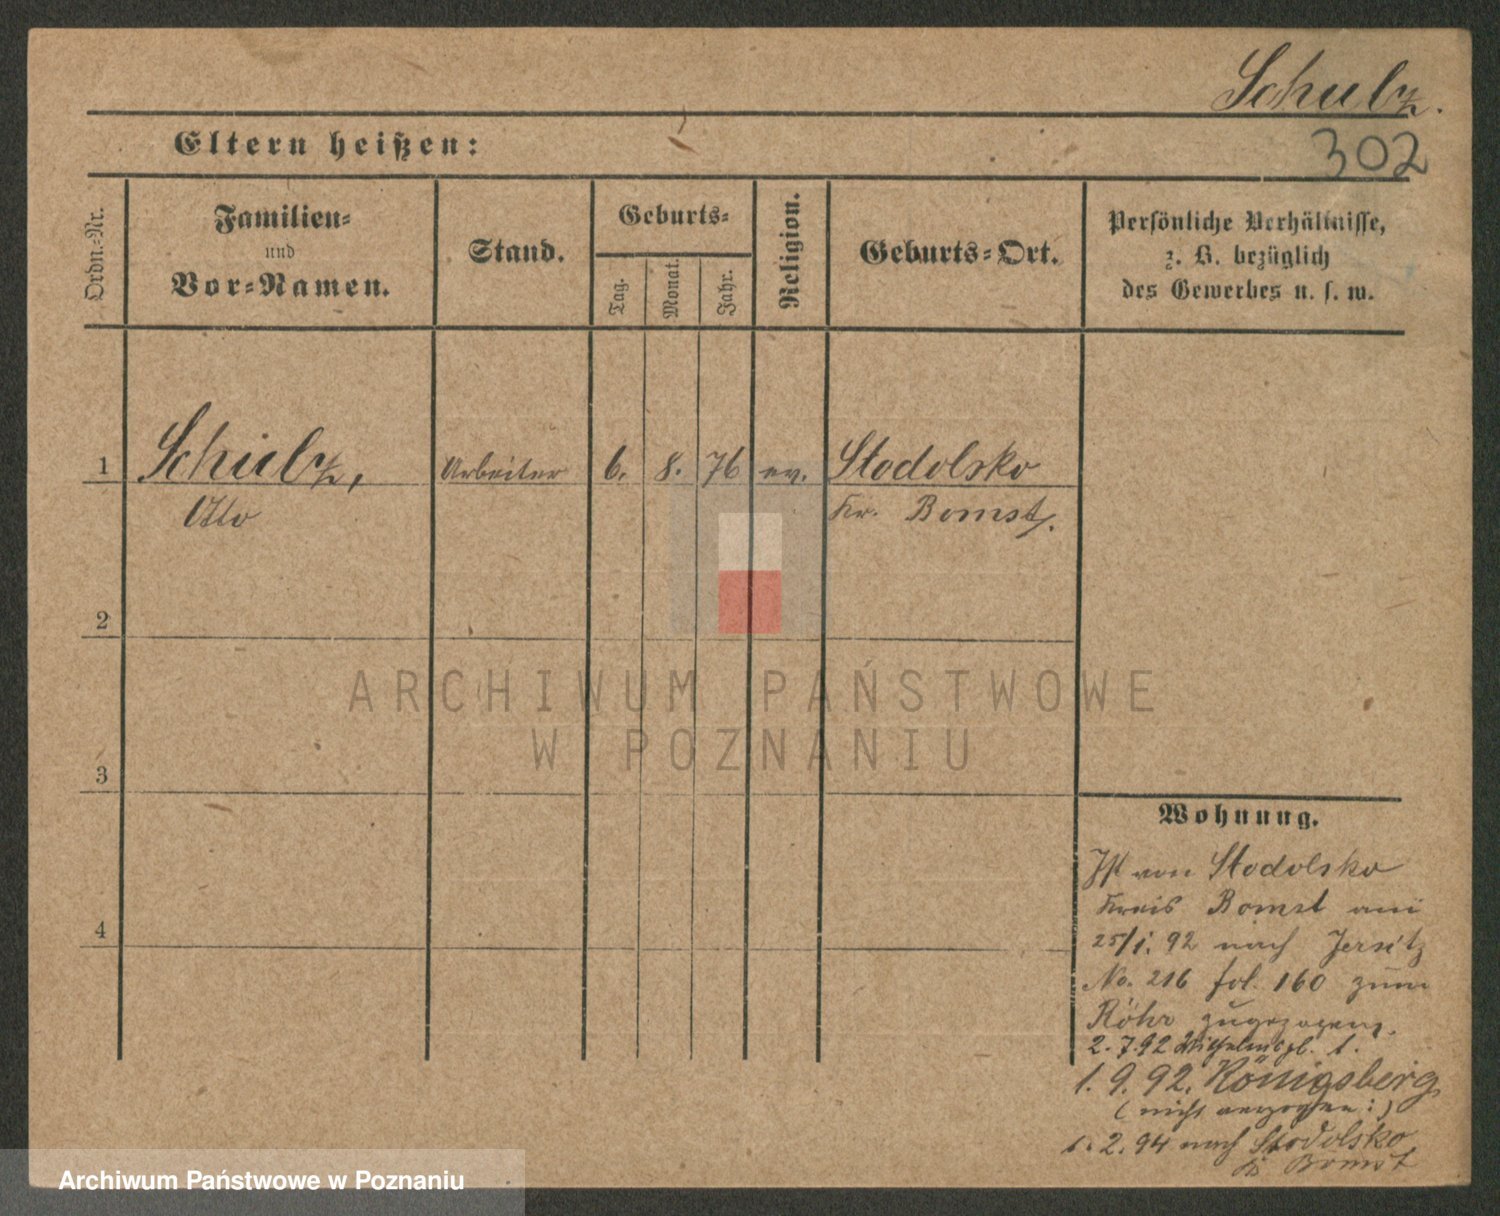 Schulz.
302
Eltern heißen:
Ordn.-Nr.
Familien-
und
Vor-Namen.
Stand.
Geburts-
Tag.
Monat.
Jahr.
Religion.
Geburts-Ort.
Persönliche Verhältnisse,
z. B. bezüglich
des Gewerbes u. s. w.
1
Schulz,
Otto
Arbeiter
6.
8.
76
ev.
Stodolsko
Kr. Bomst.
2
3
4
ARCHIWUM PAŃSTWOWE
W POZNANIU
Wohnung.
Ist von Stodolsko
Kreis Bomst am
25/1. 92 nach Jersitz
No. 216 fol. 160 zum
Röhr zugezogen.
2. 7.92 Wilhelmspl. 1.
1. 9. 92. Königsberg
(nicht verzogen:)
1. 2. 94 nach Stodolsko
Bomst
Archiwum Państwowe w Poznaniu